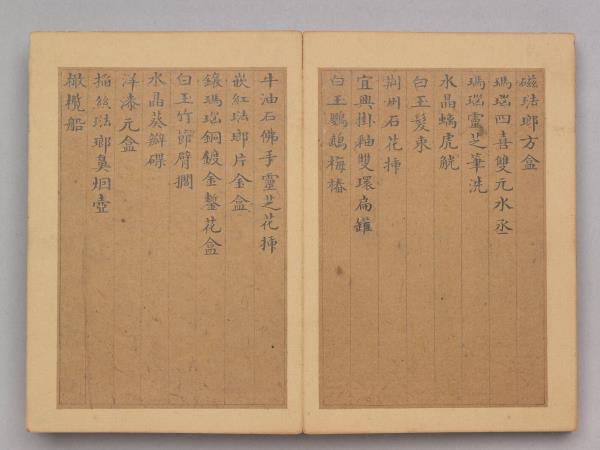 磁珐瑯方盒
瑪瑙四喜雙元水丞
瑪瑙靈芝筆洗
水晶螭虎觥
白玉髮束
荆州石花揷
宜興掛釉雙環扁罐
白玉鸚鵡梅椿
牛油石佛手靈芝花揷
嵌紅珐瑯片金盒
鑲瑪瑙銅鍍金鏨花盒
白玉竹節臂擱
水晶葵瓣碟
洋漆元盒
搯絲珐瑯鼻烟壺
橄欖船